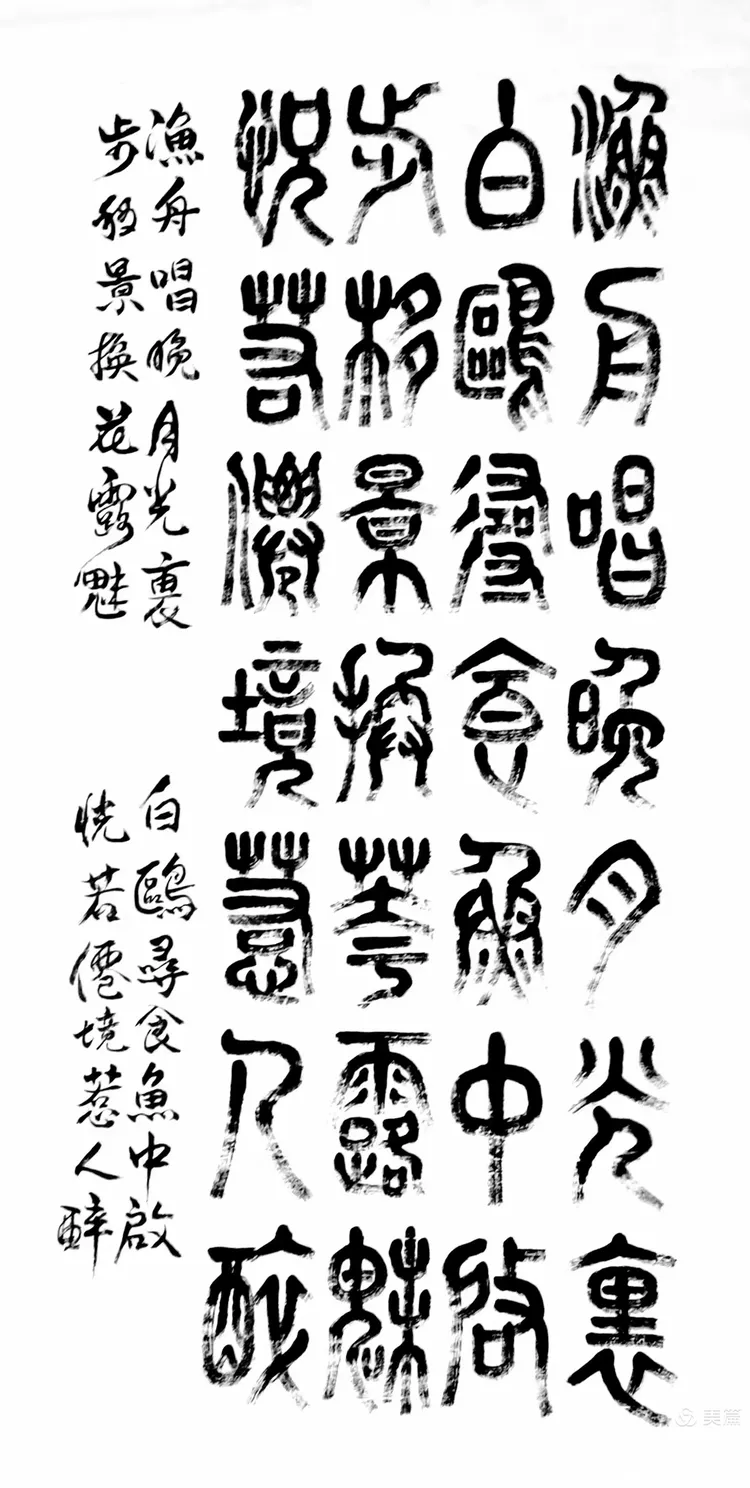 漁舟唱晚月光裏
白鷗尋食魚中啟
步移景換花露魅
恍若僊境惹人醉
漁舟唱晚月光裏
白鷗尋食魚中啟
步移景換花露魅
恍若僊境惹人醉
美篇